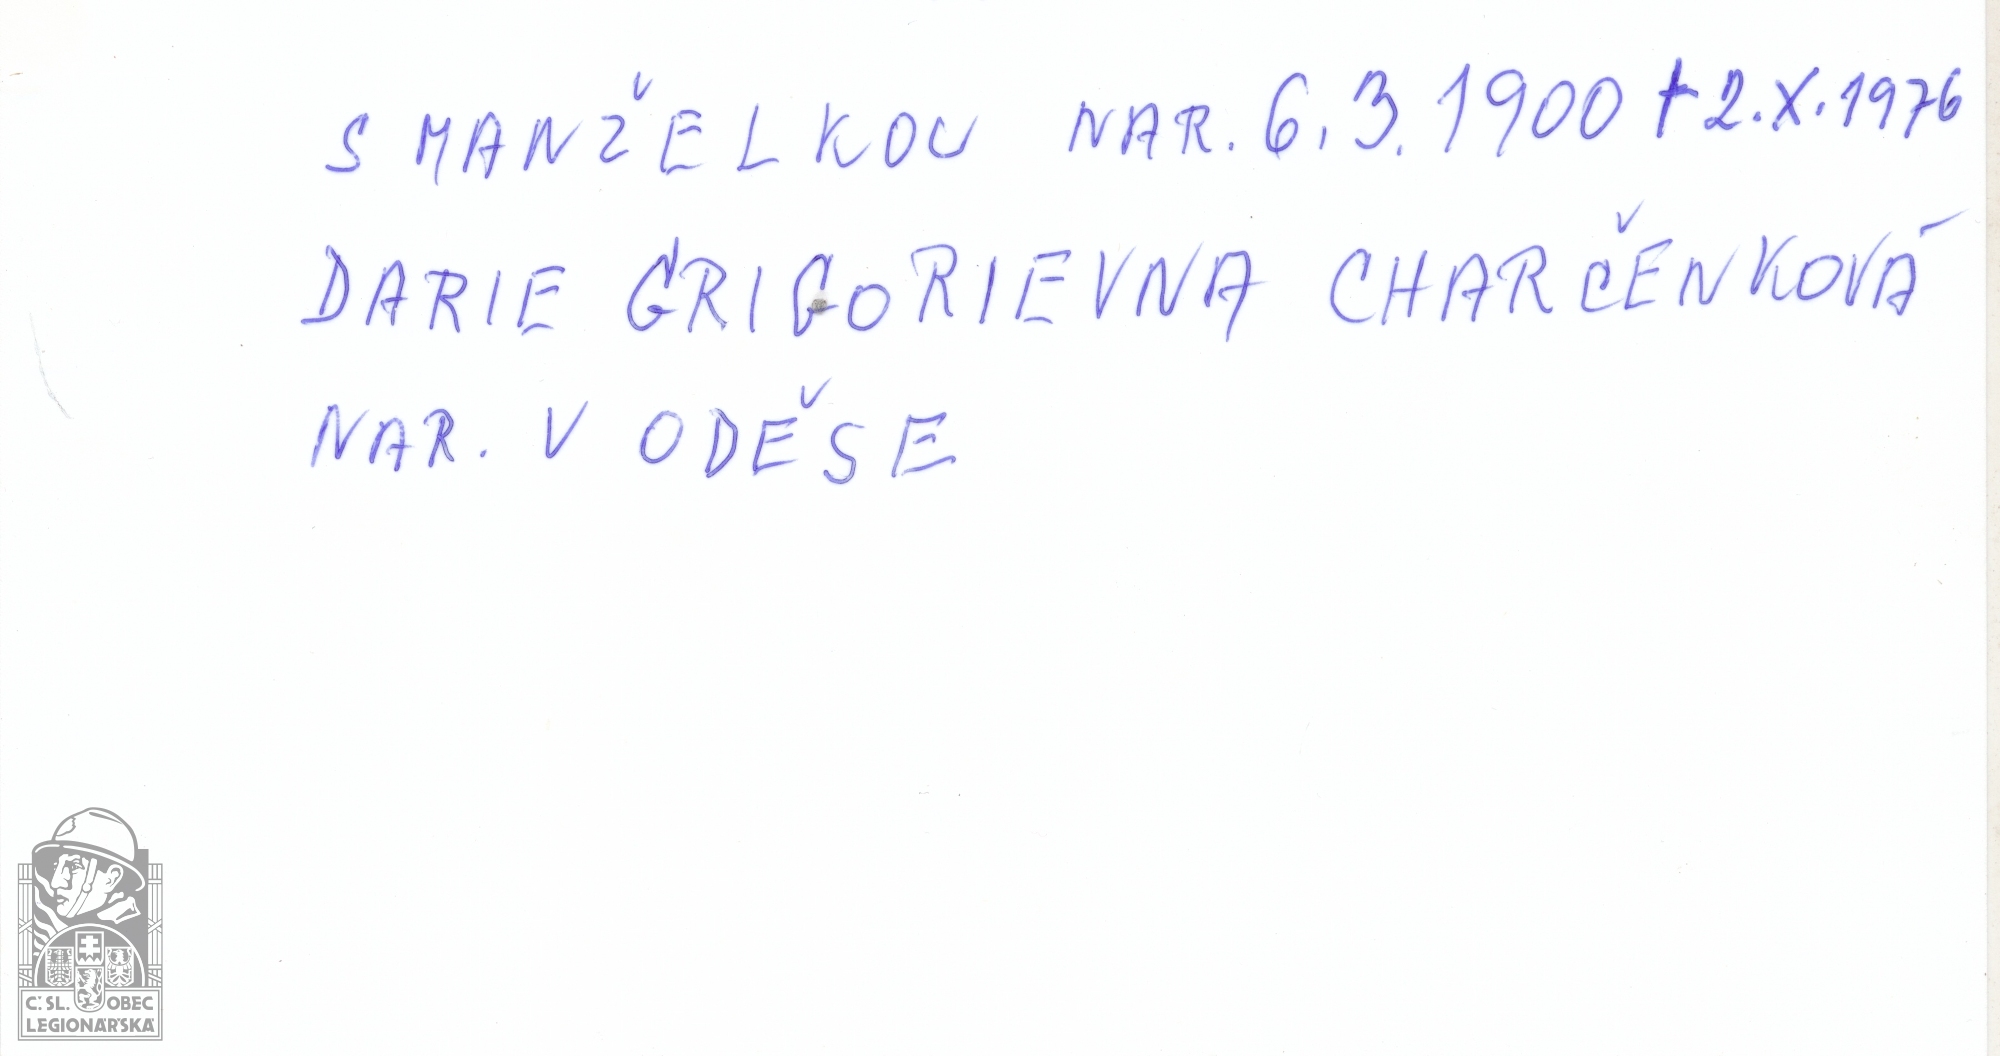 S MANŽELKOU NAR. 6.3.1900 † 2.X.1976
DARIE GRIGORIEVNA CHARČENKOVÁ
NAR. V ODĚSE
Č.SL. OBEC
LEGIONÁŘSKÁ